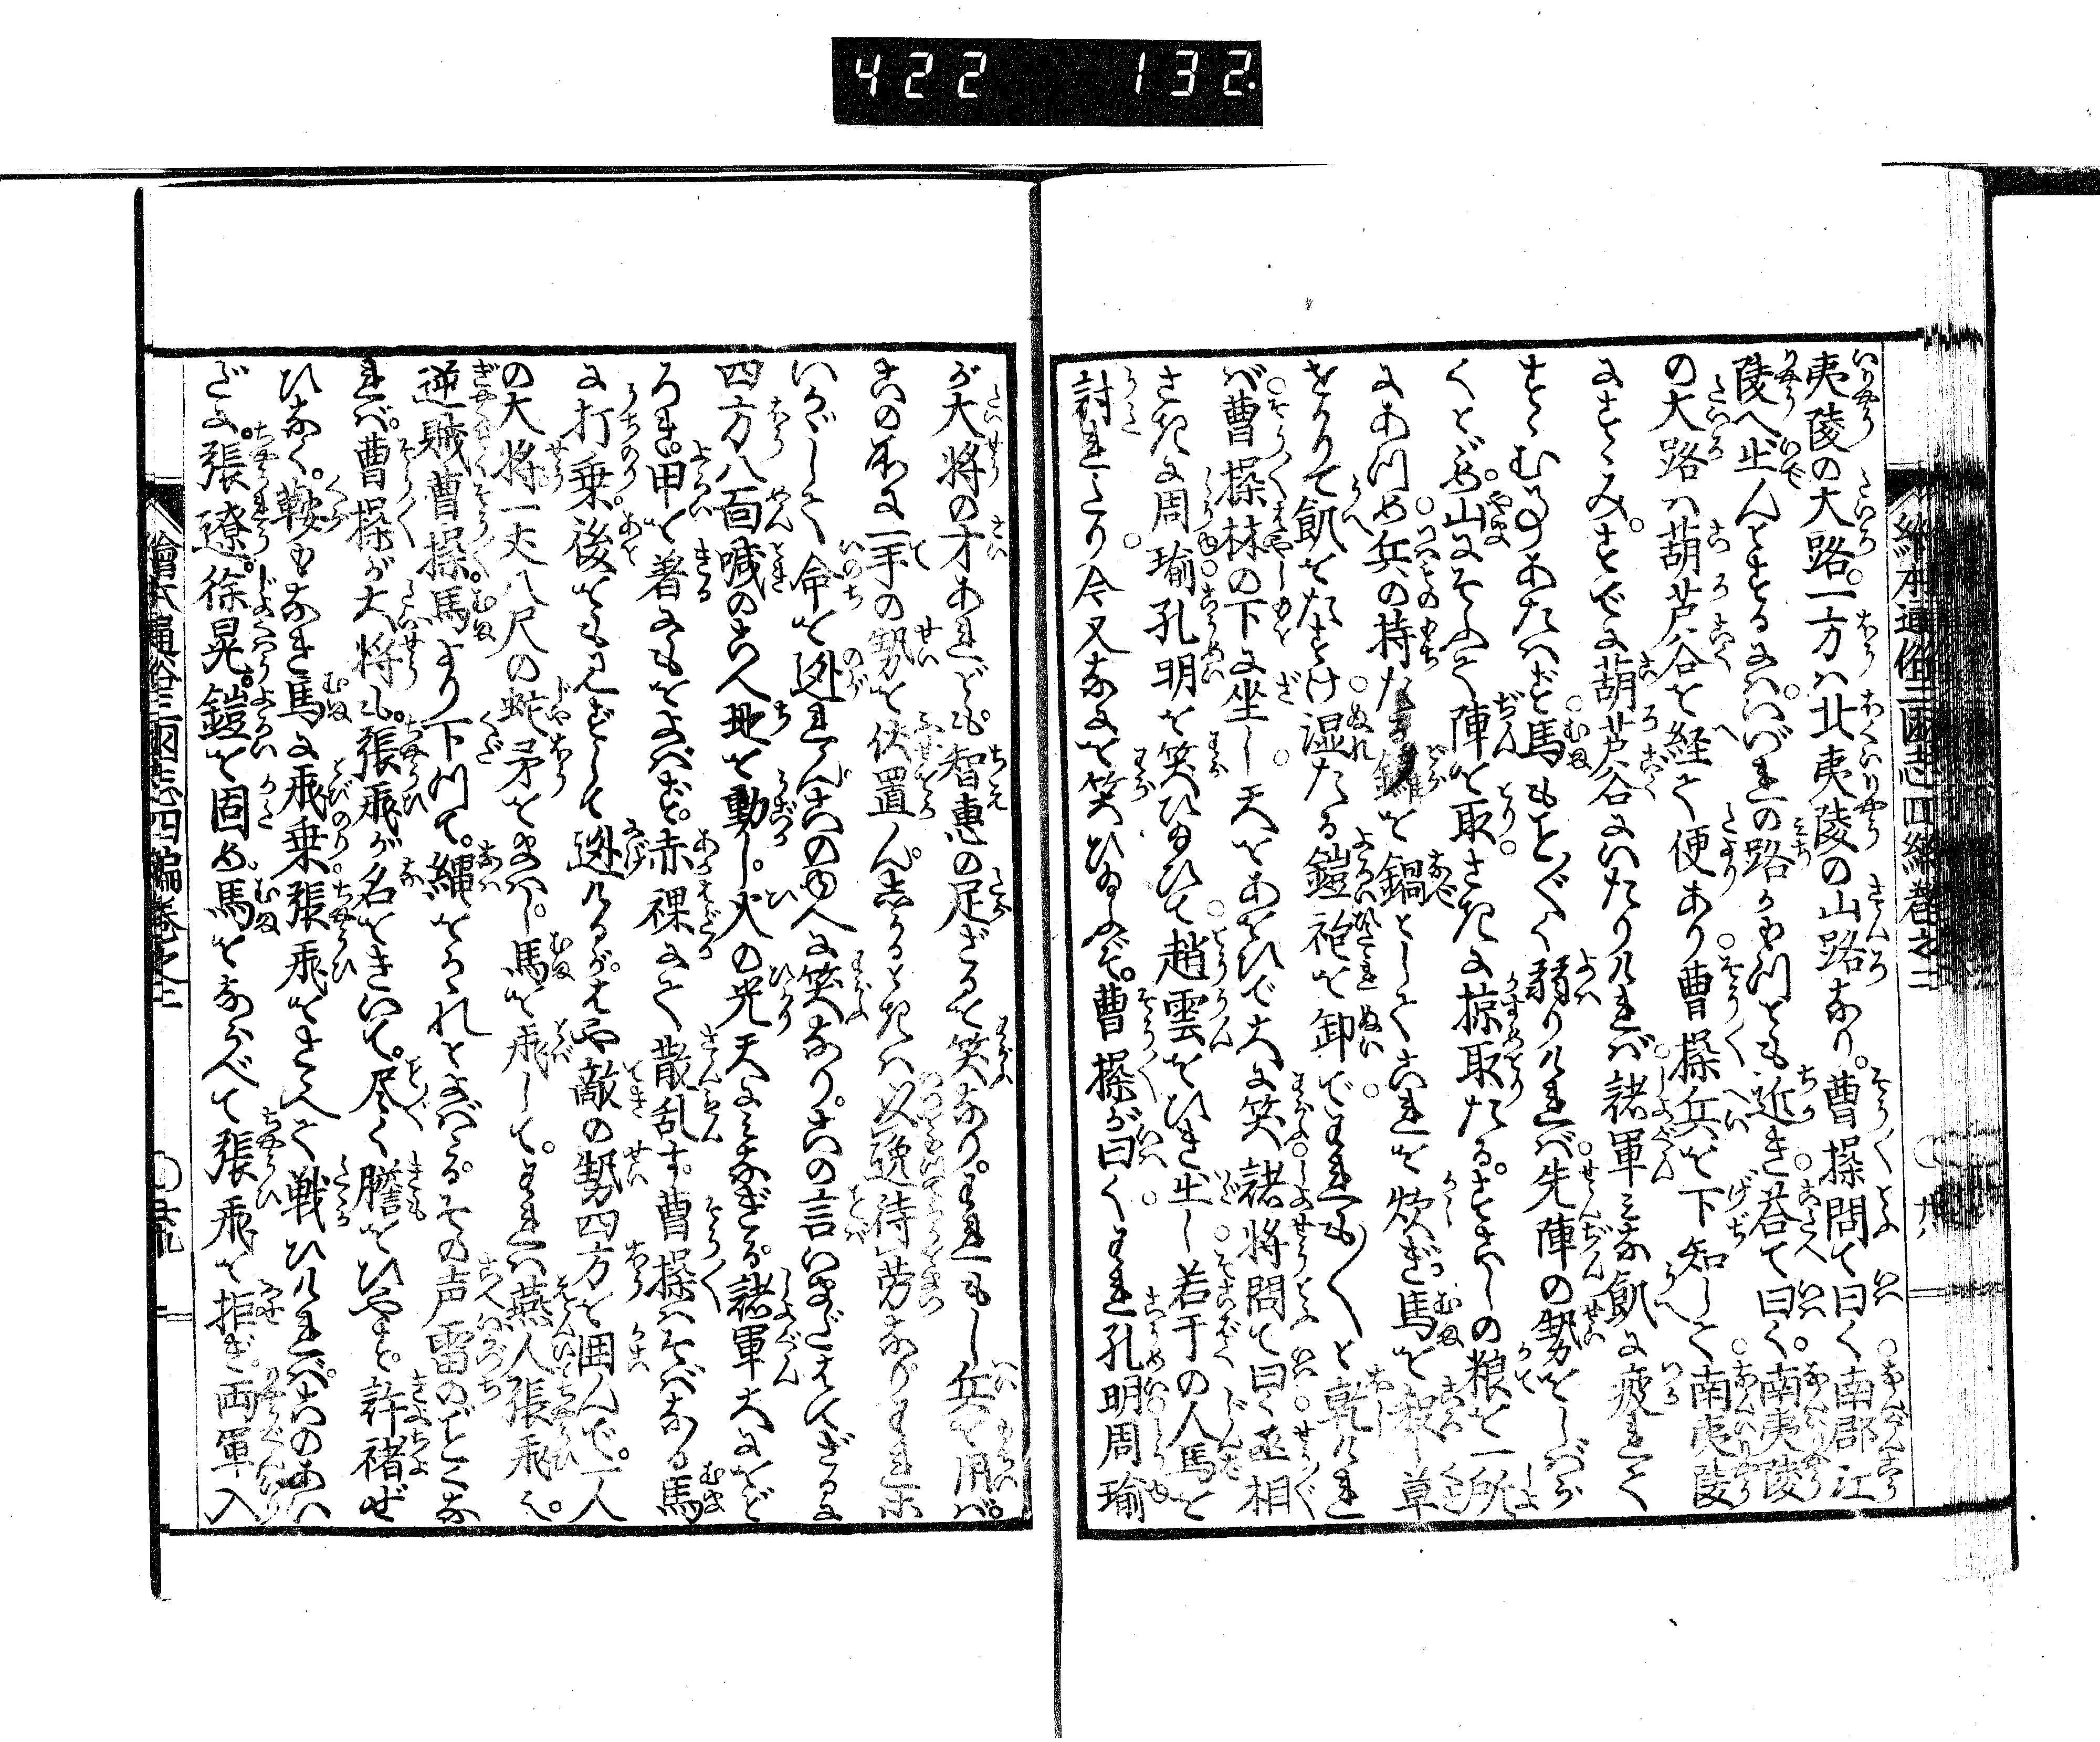 422 132
絵本通俗三国志四編巻之二
夷陵の大路一方ハ北夷陵の山路なり。曹操問て曰く南郡江
陵へ出んとするにハ。いづれの路かもつとも近き答て曰く。南夷陵
の大路ハ葫芦谷を経て便あり曹操兵を下知して南夷陵
にすゝみ。すでに葫芦谷にいたりければ諸軍みな飢に疲れて
すゝむ事あたハず馬もことごとく弱りければ先陣の勢をしばら
くとゞめ。山にそふて陣を取さきに掠取たる。すこしの粮を一所
にあつめ兵の持たる鑼を鍋としてこれを炊ぎ。馬を殺し草
をかりて飢をたすけ湿たる鎧袍を卸でこれも〳〵と乾ければ
曹操林の下に坐し天をあをひで大に笑諸将問て曰く丞相
さきに周瑜孔明を笑ひ給ひて趙雲をひき出し若干の人馬を
討れたり今又なにを笑ひ給ふぞ。曹操が曰くわれ孔明周瑜
が大将の才あれども智恵の足ざるを笑なり。われもし兵を用ば。
この所に一手の勢を伏置ん。しかるときハ以逸待労ながら
いかゞして命を逃れんこの故に笑なり。この言いまだをハらざるに
四方八面喊のこゑ地を動し。火の光天にみなぎる。諸軍大におど
ろき。甲を著にもをよばず。赤裸にて散乱す。曹操ハそばなる馬
に打乗後をも見ずして逃けるが。はや敵の勢四方を囲んで。一人
の大将一丈八尺の蛇矛をまハし馬を飛して。われハ燕人張飛也。
逆賊曹操。馬より下つて。縄をかゝれとよばゝる。その声雷のごとくな
れば。曹操が大将も。張飛が名をきいて。尽く膽をひやす。許褚ぜ
ひなく。鞍もなき馬に飛乗張飛をさゝへて戦ひければ。このあい
だに。張遼。徐晃。鎧を固め馬をならべて張飛を拒ぎ。両軍入
絵本通俗三国志四編巻之二